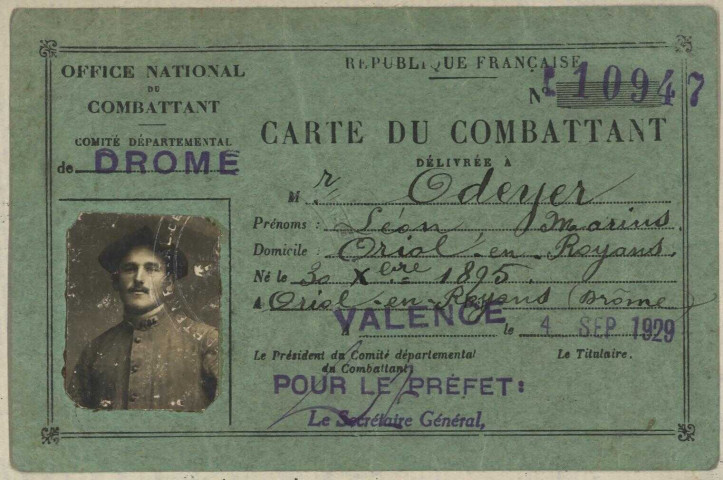 OFFICE NATIONAL
DU
COMBATTANT
COMITÉ DÉPARTEMENTAL
de DROME
RÉPUBLIQUE FRANÇAISE
N° 10947
CARTE DU COMBATTANT
DÉLIVRÉE À
Mr Odeyer
Prénoms : Léon, Marius
Domicile : Oriol-en-Royans.
Né le 30 Xbre 1895
A Oriol-en-Royans (Drôme)
VALENCE le 4 SEP 1929
Le Président du Comité départemental
du Combattant,
Le Titulaire.
POUR LE PRÉFET:
Le Secrétaire Général,